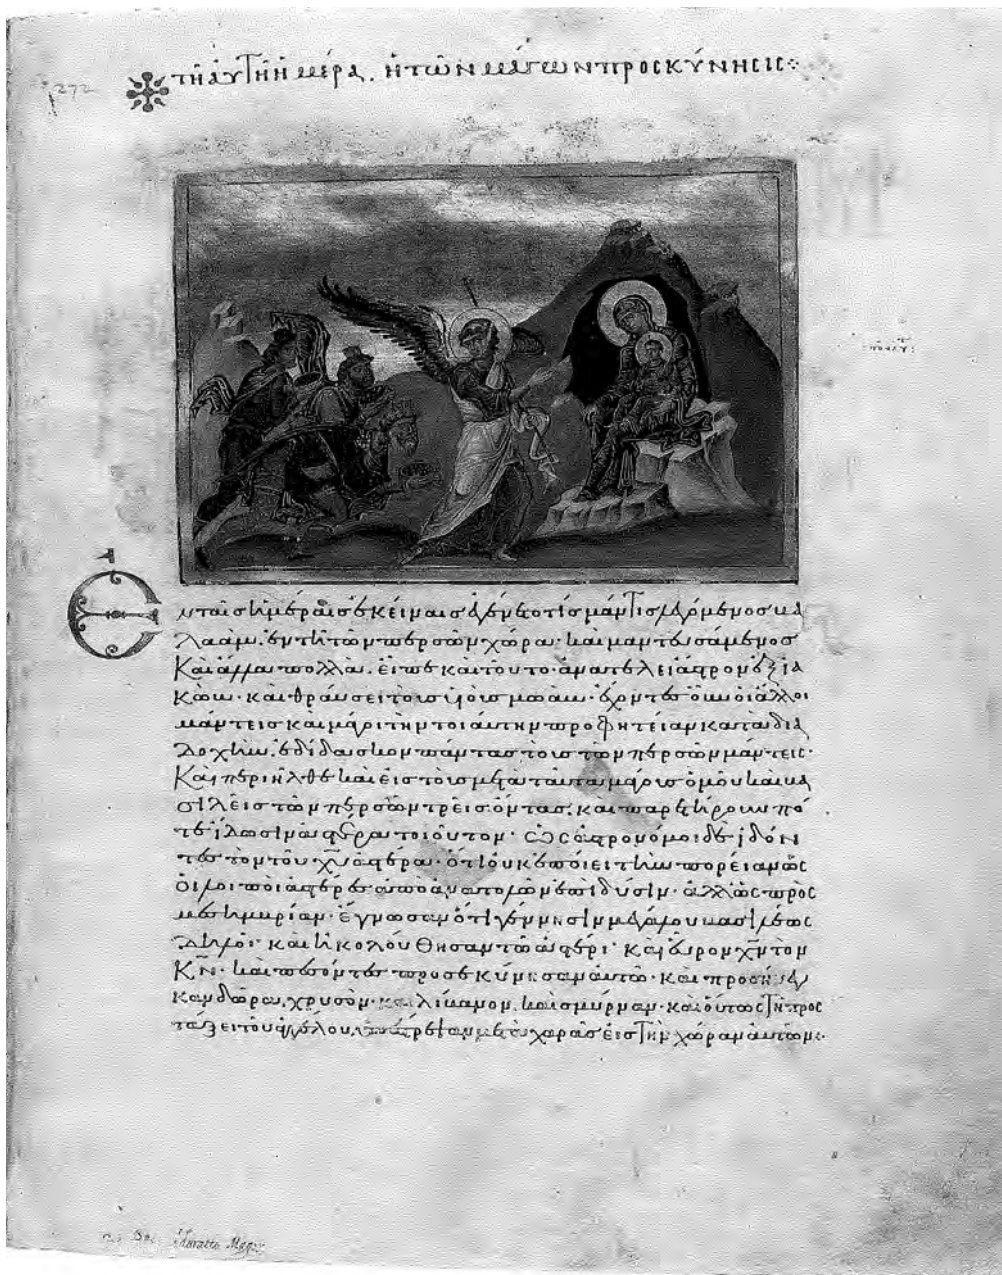 272
τῇ αὐτῇ ἡμέρᾳ. ἡ τῶν μάγων προσκύνησις
Ἐν ταῖς ἡμέραις ἐκείναις ἐγένετό τις μάντις λεγόμενος βα
λαάμ. ἐν τῇ τῶν περσῶν χώρα. καὶ μαντευσάμενος
Καὶ ἄλλα πολλὰ. εἶπε καὶ τοῦτο. ἀνατελεῖ ἄστρον ἐξ ἰα
κώβ. καὶ θραύσει τοὺς υἱοὺς μωάβ. ἔχοντες οὖν οἱ ἄλλοι
μάντεις καὶ μάγοι τὴν τοιαύτην προφητείαν κατὰ δια
δοχὴν. ἐδίδασκον πάντας τοὺς τῶν περσῶν μάντεις.
Καὶ περιῆλθε καὶ εἰς τοὺς μετὰ ταῦτα μάγους ὁμοῦ καὶ βα
σιλεῖς τῶν περσῶν τρεῖς ὄντας. καὶ παρετήρουν πό
τε ἴδωσιν ἀστέρα τοιοῦτον. ὡς ἀστρονόμοι δὲ ἰδόν
τες τὸν τοῦ χυ ἀστέρα. ὅτι οὐκ ἐποίει τὴν πορείαν ὡς
οἱ λοιποὶ ἀστέρες ἀπὸ ἀνατολῶν ἐπὶ δύσιν. ἀλλ' ὡς πρὸς
μεσημβρίαν. ἔγνωσαν ὅτι γέννησιν μεγάλου βασιλέως
δηλοῖ. καὶ ἠκολούθησαν τῷ ἀστέρι. καὶ εὗρον χν τὸν
κν. καὶ πεσόντες προσεκύνησαν αὐτῶ. καὶ προσήνεγ
καν δῶρα. χρυσὸν. καὶ λίβανον. καὶ σμύρναν. καὶ οὕτως τῇ προς
τάξει τοῦ ἀγγέλου, ὑπέστρεψαν μετὰ χαρᾶς εἰς τὴν χώραν αὐτῶν